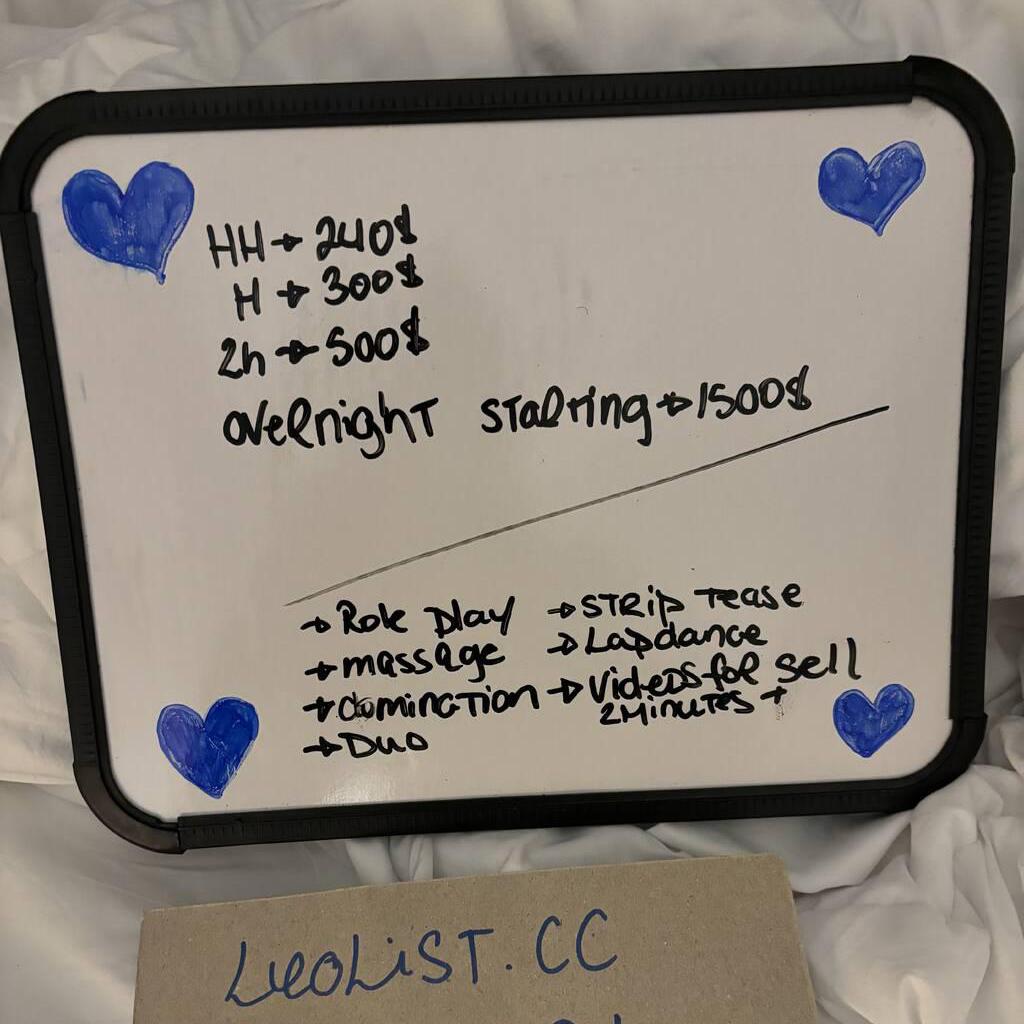 HH → 240$
H → 300$
2h → 500$
overnight starting → 1500$
→ Role play
→ massage
→ domination
→ Duo
→ STRIP Tease
→ Lapdance
→ Videos for sell
2 Minutes +
LEOLiST.CC